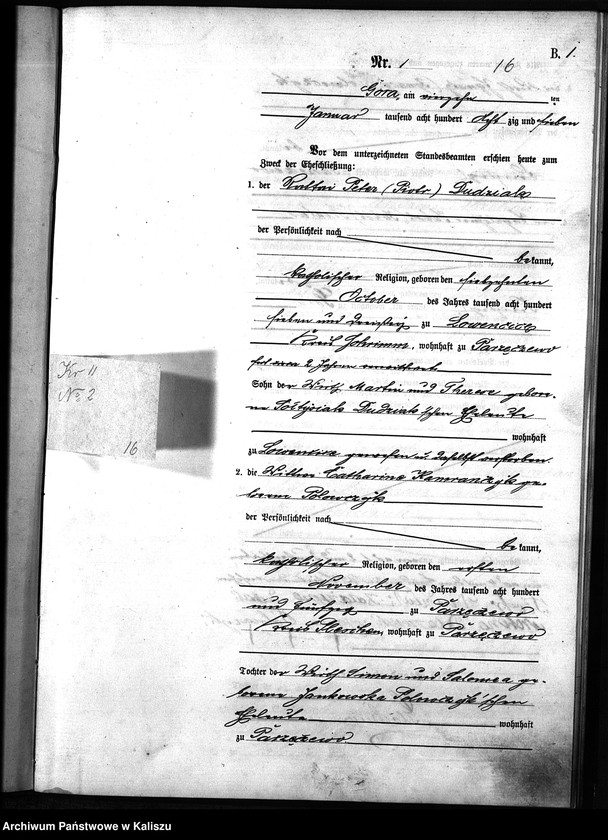 B. 1.
Nr. 1 16
Gora, am vierzehn ten
Januar tausend acht hundert Acht zig und sieben
Vor dem unterzeichneten Standesbeamten erschien heute zum
Zweck der Eheschließung:
1. der Peter (Piotr) Dudziak
der Persönlichkeit nach
be kannt,
katholischer Religion, geboren den siebzehnten
October des Jahres tausend acht hundert
sieben und dreißig zu Lowencice
Kreis, wohnhaft zu Parzęczewo
seit 2 Jahren
Sohn der Wirth Martin und Therese gebore-
ne Dudziak'schen Eheleute
wohnhaft
zu Lowencice gewesen u. daselbst verstorben.
2. die Wittwe Catharina ge-
borene Polowczyk
der Persönlichkeit nach
be kannt,
katholischer Religion, geboren den ersten
November des Jahres tausend acht hundert
und fünfzig zu Parzęczewo
Kreis Pleschen, wohnhaft zu Parzęczewo
Tochter der Wirth Simon und Salomea ge-
borene Jankowska Polowczyk'schen
Eheleute wohnhaft
zu Parzęczewo
Kr 11
No 2
16
Archiwum Państwowe w Kaliszu